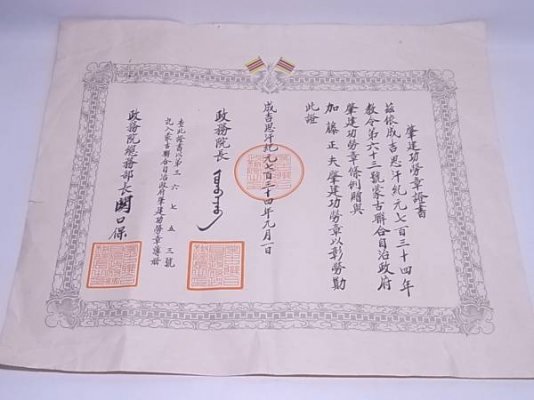 肇建功勞章證書
茲依成吉思汗紀元七百三十四年
教令第六十三號蒙古聯合自治政府
肇建功勞章條例贈與
加藤正夫肇建功勞章以彰勞勩
此證
成吉思汗紀元七百三十四年九月一日
政務院長
查此證書以第三六七五三號
記入蒙古聯合自治政府肇建功勞章
政務院總務部長關口保